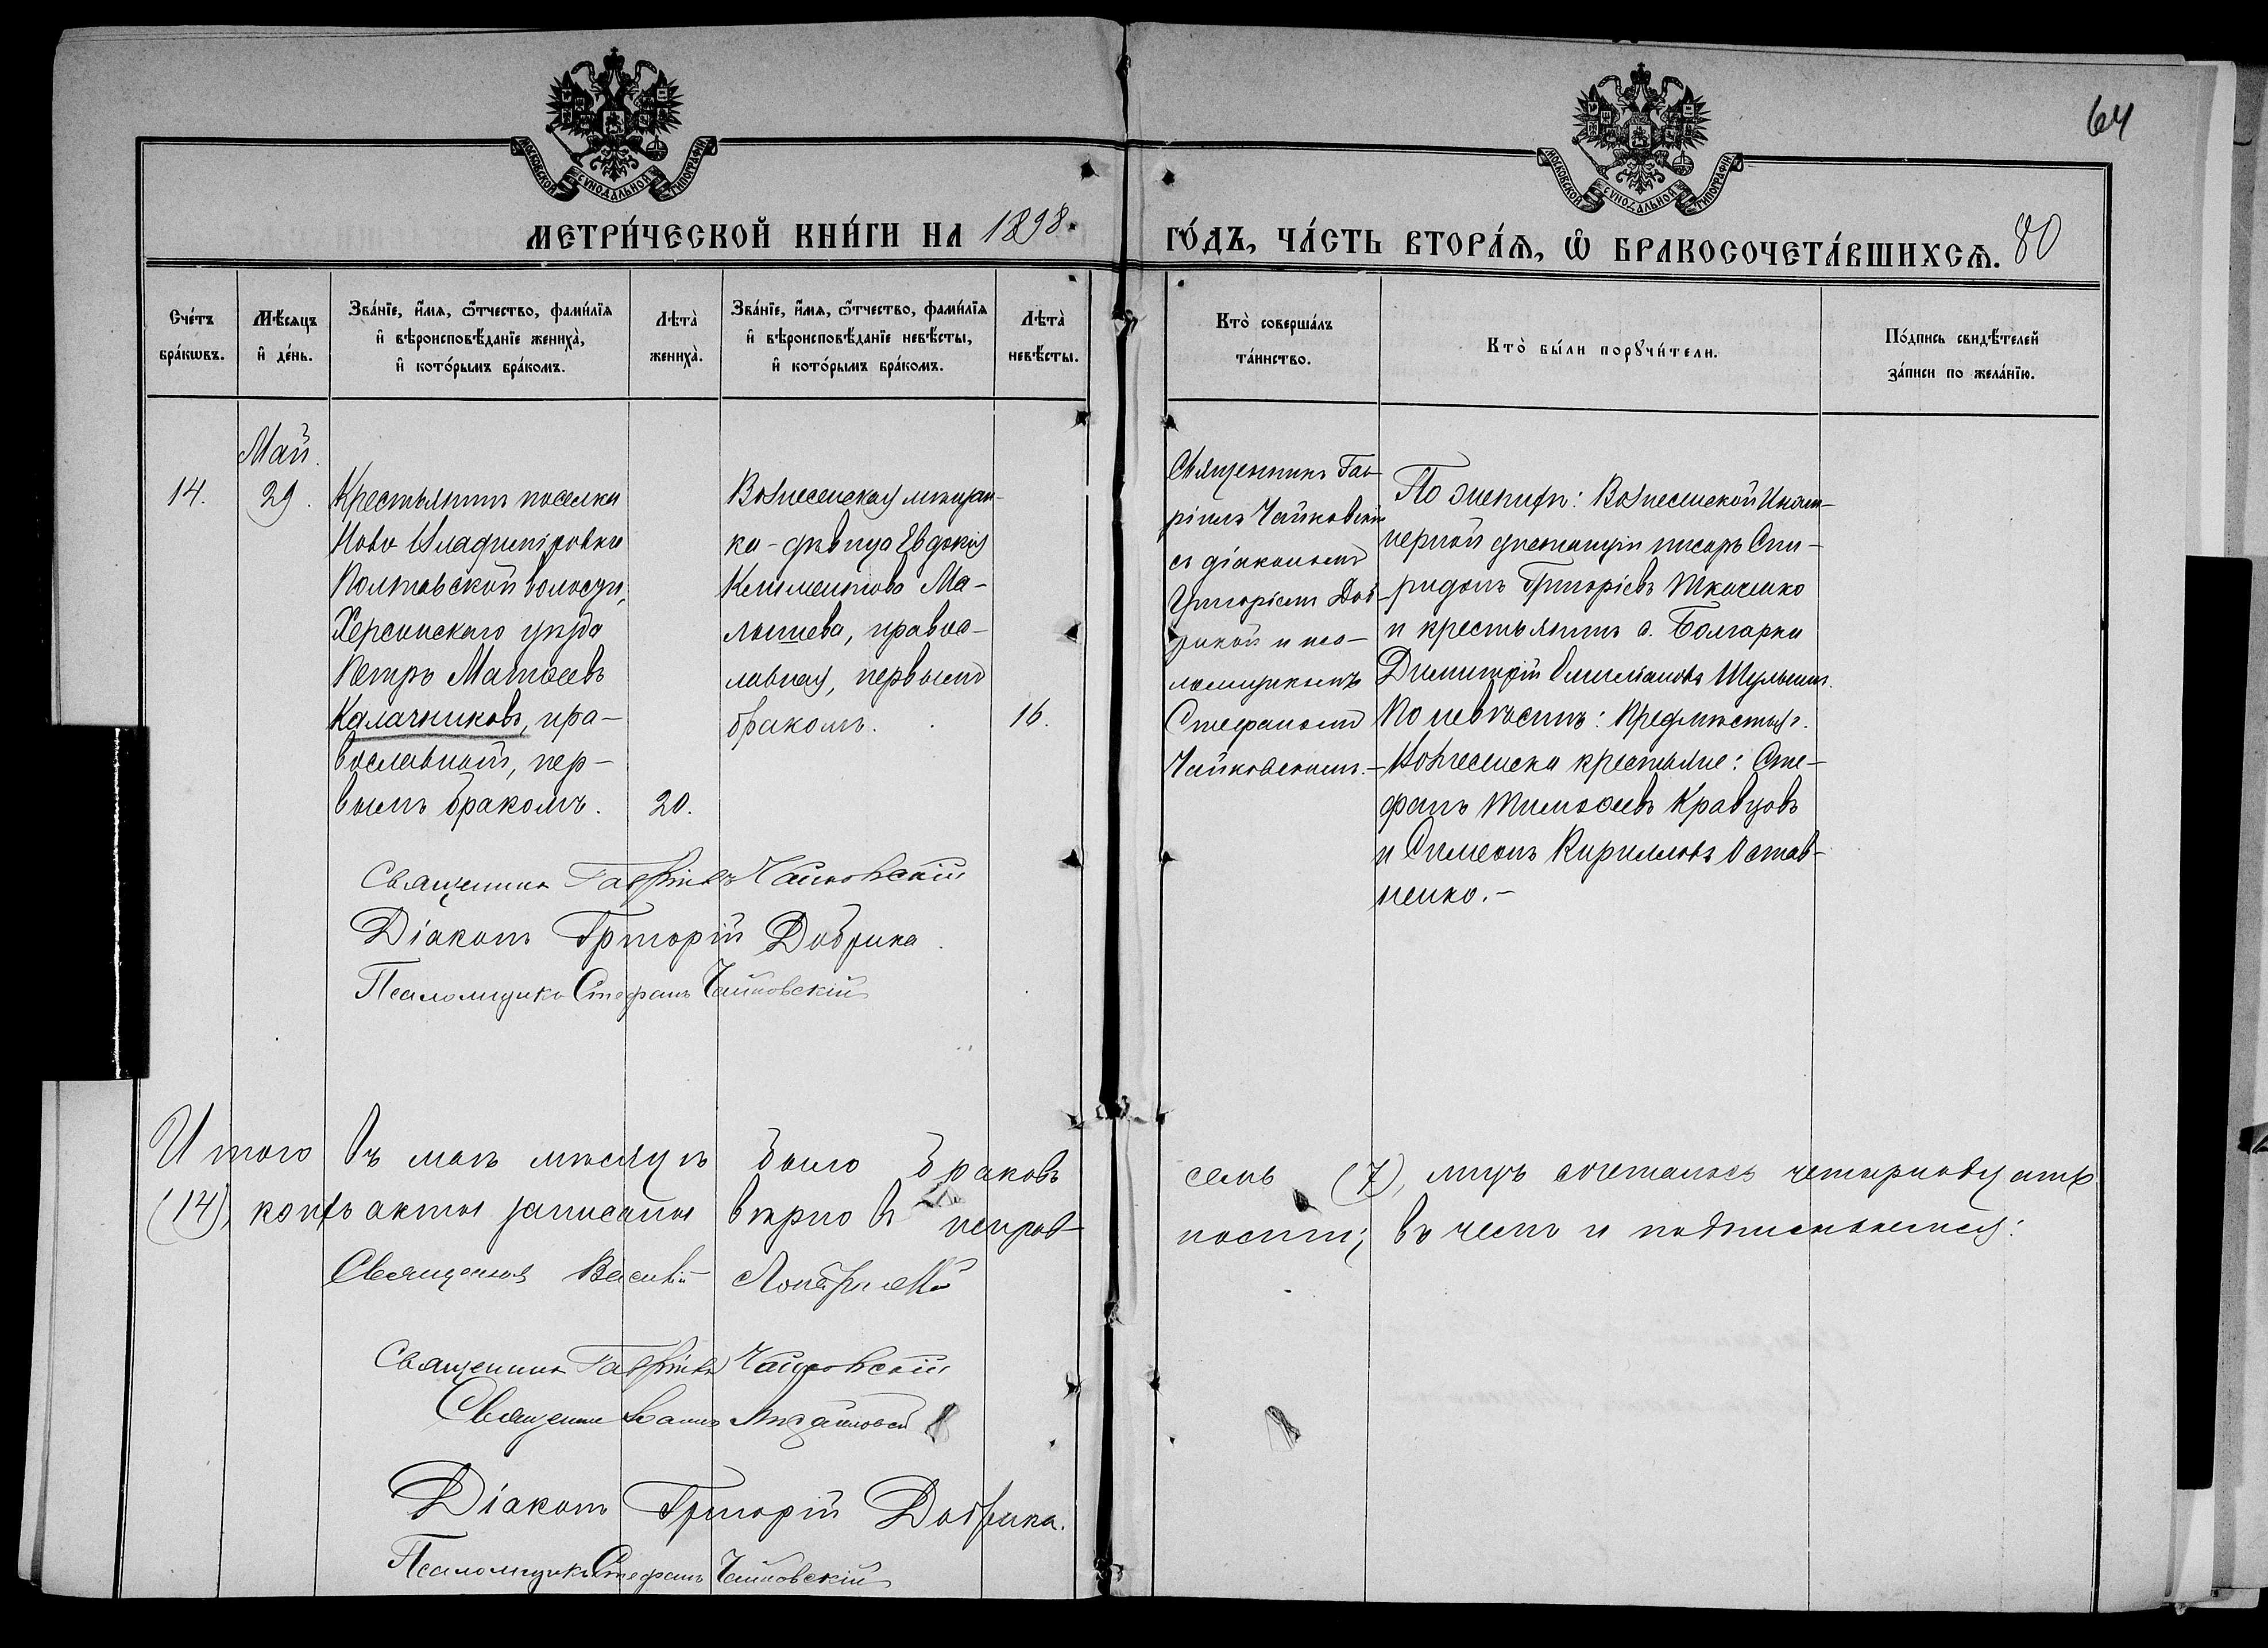 64
МОСКОВСКОЙ СУНОДАЛЬНОЙ ТИПОГРАФІИ
МОСКОВСКОЙ СУНОДАЛЬНОЙ ТИПОГРАФІИ
МЕТРИ́ЧЕСКОЙ КНИ́ГИ НА 1898.
ГО́ДЪ, ЧА́СТЬ ВТОРА́Я, Ѿ БРАКОСОЧЕТА́ВШИХСЯ. 80
Сче́тъ бра́кѡвъ.
Мѣ́сяцъ и҆ де́нь.
Зва́нїе, и҆́мя, ѻ҆́тчество, фами́лїя и҆ вѣроисповѣ́данїе жениха̀, и҆ кото́рымъ бра́комъ.
Лѣта̀ жениха̀.
Зва́нїе, и҆́мя, ѻ҆́тчество, фами́лїя и҆ вѣроисповѣ́данїе невѣ́сты, и҆ кото́рымъ бра́комъ.
Лѣта̀ невѣ́сты.
Кто̀ соверша́лъ та́инство.
Кто̀ бы́ли порꙋчи́тели.
По́дпись свидѣ́телей за́писи по жела́нїю.
Май.
14.
29.
Крестьянинъ поселка
Ново Владиміровки
Полтавской волости,
Херсонскаго уѣзда
Петръ Матѳеевъ
Калачниковъ, пра-
вославный, пер-
вымъ бракомъ.
20.
Вознесенская мѣщан-
ка - дѣвица Евдокія
Климентова Ма-
лышева, правос-
лавная, первымъ
бракомъ.
16.
Священникъ Гав-
ріилъ Чайковскій
съ діакономъ
Григоріемъ Доб-
рикой и пса-
ломщикомъ
Стефаномъ
Чайковскимъ.-
По женихѣ: Вознесенской
писарь Спи-
ридонъ Григорієвъ Ткаченко
и крестьянинъ с. Болгарки
Димитрій
По невѣстѣ: Предмѣстья г.
Вознесенска крестьяне: Сте-
фанъ Тимоѳеевъ Кравцовъ
и Симеонъ Кирилловъ Остап-
пенко.-
Священникъ Гавріилъ Чайковскій
Діаконъ Григорій Добрика.
Псаломщикъ Стефанъ Чайковскій
Итого въ маѣ мѣсяцѣ было браковъ
семь (7), лицъ сочеталось четырнадцать
(14), коихъ акты записаны вѣрно въ исправ-
ности; въ чемъ и подписываемся:
Священникъ Василій
Священникъ Гавріилъ Чайковскій
Священникъ Іоаннъ Михайловскій
Діаконъ Григорій Добрика.
Псаломщикъ Стефанъ Чайковскій